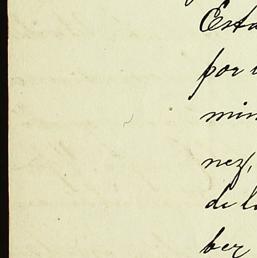 Esta
por
min
nez,
de l
ber